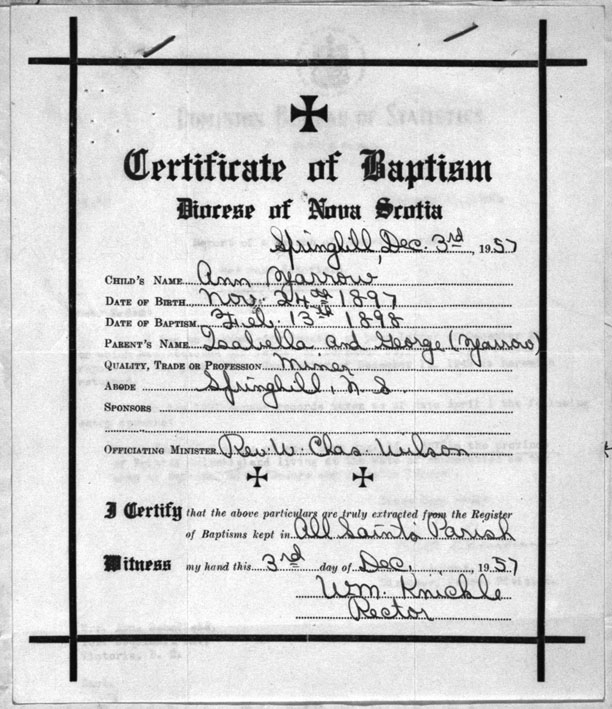 DOMINION BUREAU OF STATISTICS
Certificate of Baptism
Diocese of Nova Scotia
Springhill, Dec. 3rd, 1957
CHILD'S NAME Ann Yarrow
DATE OF BIRTH Nov. 24th 1897
DATE OF BAPTISM Feb. 13th 1898
PARENT'S NAME Isabella and George (Yarrow)
QUALITY, TRADE OR PROFESSION Miner
ABODE Springhill, N S
SPONSORS
OFFICIATING MINISTER Rev. W. Chas. Wilson
I Certify that the above particulars are truly extracted from the Register
of Baptisms kept in All Saints Parish
Witness my hand this 3rd day of Dec. 1957
Wm. Knickle
Rector